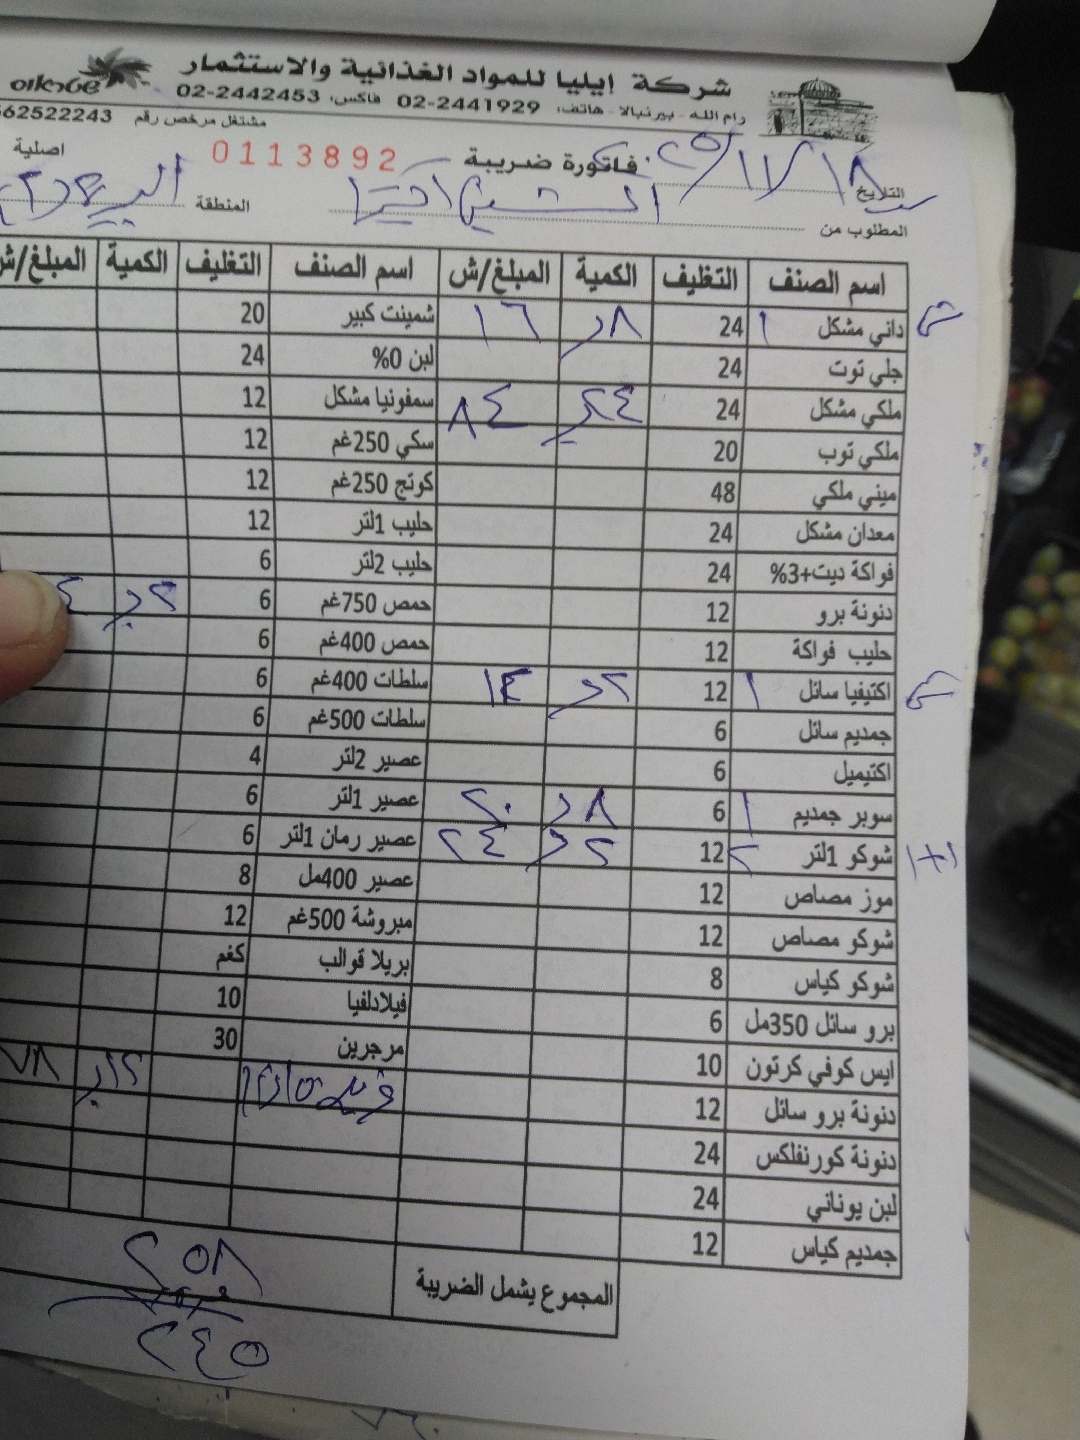 شركة إيليا للمواد الغذائية والاستثمار
רام الله - بيرنبالا - هاتف: 02-2441929 فاكس: 02-2442453
مشتغل مرخص رقم 562522243
فاتورة ضريبة 0113892 اصلية
التاريخ ١٨/١١/٢٠٢٥
المطلوب من المنطقة
اسم الصنف التغليف الكمية المبلغ/ش اسم الصنف التغليف الكمية المبلغ/ش
داني مشكل ١ 24 ٨ ١٦ شمينت كبير 20
جلي توت 24 لبن 0% 24
ملكي مشكل 24 ٢٤ ٨٤ سمفونيا مشكل 12
ملكي توب 20 سكي 250غم 12
ميني ملكي 48 كوتج 250غم 12
معدان مشكل 24 حليب 1لتر 12
فواكة ديت+3% 24 حليب 2لتر 6
دنونة برو 12 حمص 750غم 6
حليب فواكة 12 حمص 400غم 6
اكتيفيا سائل ١ 12 ٢ ١٤ سلطات 400غم 6
جمديم سائل 6 سلطات 500غم 6
اكتيميل 6 عصير 2لتر 4
سوبر جمديم ١ 6 ٨ ٢٠ عصير 1لتر 6
١+١ شوكو 1لتر ٢ 12 ٢ ٢٤ عصير رمان 1لتر 6
موز مصاص 12 عصير 400مل 8
شوكو مصاص 12 مبروشة 500غم 12
شوكو كياس 8 بريلا قوالب كغم
برو سائل 350مل 6 فيلادلفيا 10
ايس كوفي كرتون 10 مرجرين 30
دنونة برو سائل 12 ١٢ ٧٨
دنونة كورنفلكس 24
لبن يوناني 24
جمديم كياس 12
المجموع يشمل الضريبة ٢٥٨
٢٤٥